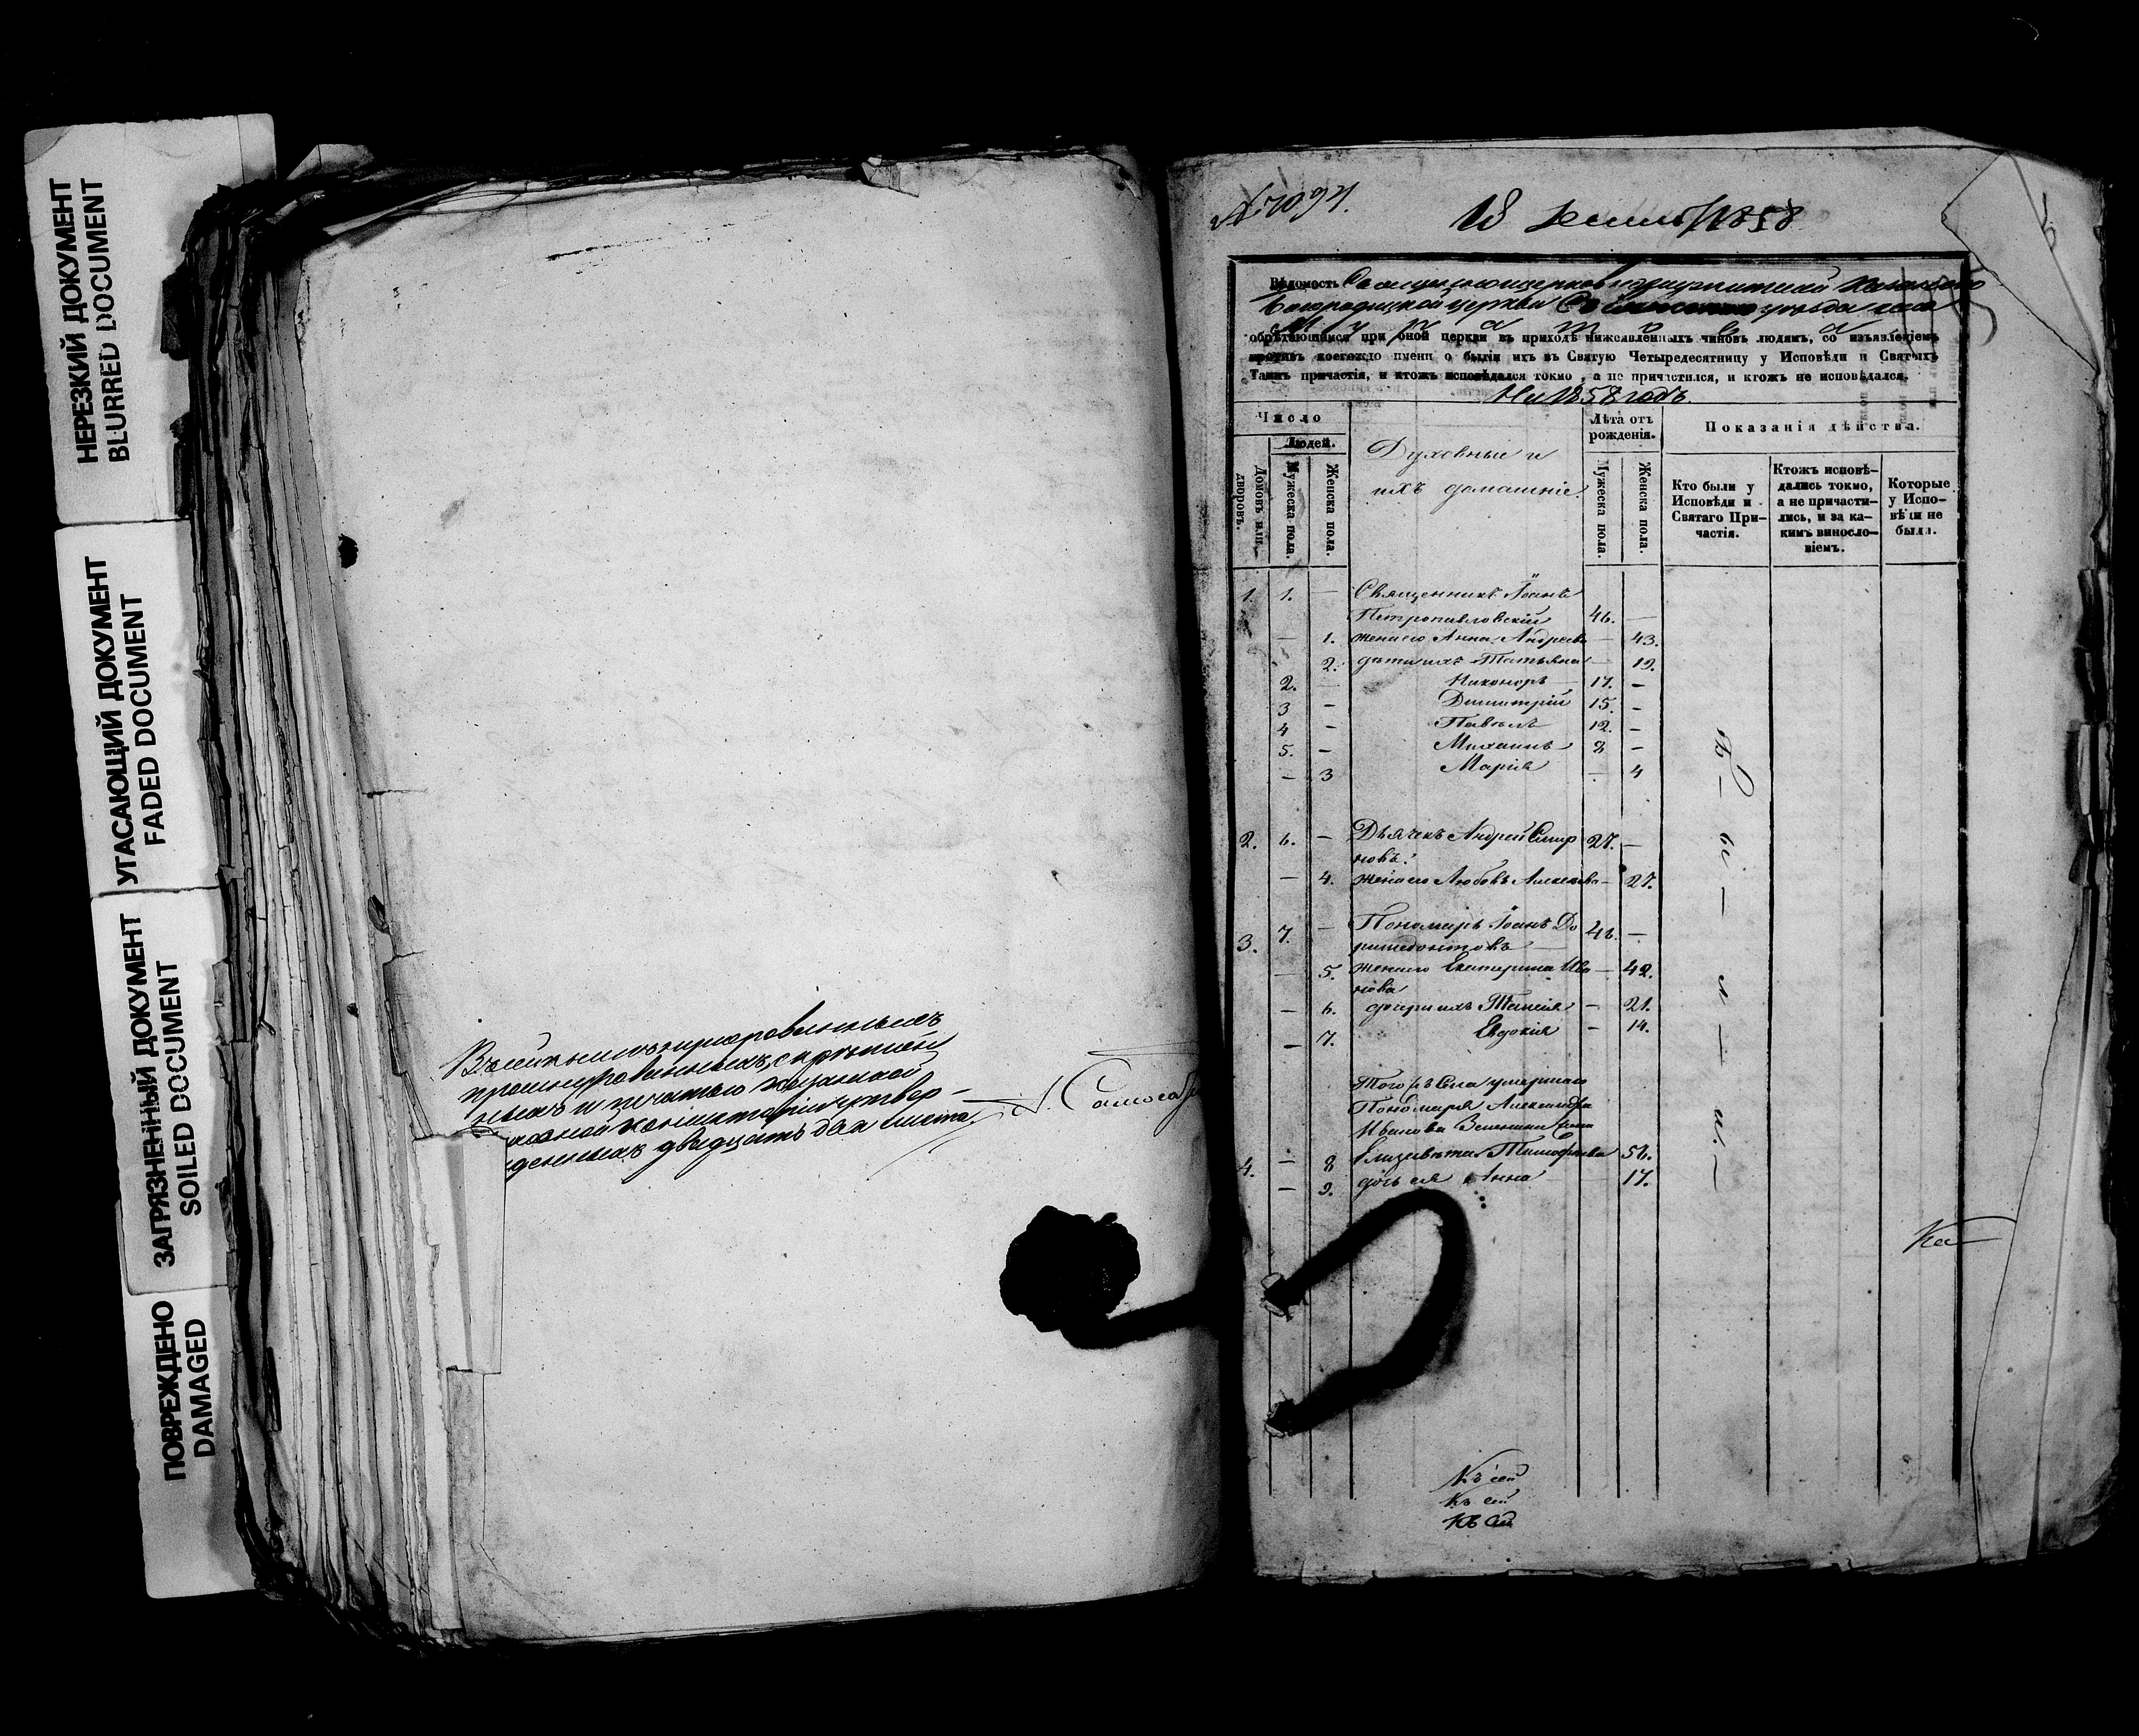 НЕРЕЗКИЙ ДОКУМЕНТ
BLURRED DOCUMENT
УГАСАЮЩИЙ ДОКУМЕНТ
FADED DOCUMENT
ЗАГРЯЗНЕННЫЙ ДОКУМЕНТ
SOILED DOCUMENT
ПОВРЕЖДЕНО
DAMAGED
прошнурованныхъ, скрѣплен
ныхъ и печатью Казанской
ховной консисторіи утвер-
жденныхъ двадцать два листа.
№ 7094.
18 1858
Вѣдомость Казанско
Богородицкой церкви уѣзда села
обрѣтающимся при оной церкви въ приходѣ нижеявленныхъ чиновъ людямъ, со изъявленіемъ
противъ коегождо имени о бытіи ихъ въ Святую Четыредесятницу у Исповѣди и Святыхъ
Таинъ причастія, и ктожъ исповѣдался токмо, а не причастился, и ктожъ не исповѣдался.
На 1858 годъ.
Число
Людей.
Домовъ или дворовъ.
Мужеска пола.
Женска пола.
Духовные и
ихъ домашніе.
Лѣта отъ
рожденія.
Мужеска пола.
Женска пола.
Показанія дѣйства.
Кто были у
Исповѣди и
Святаго При-
частія.
Ктожъ исповѣ-
дались токмо,
а не причасти-
лись, и за ка-
кимъ винosло-
віемъ.
Которые
у Испо-
вѣди не
были.
1. 1. — Священникъ Іоаннъ
Петропавловскій 46. —
— 1. жена его Анна Андреева — 43.
2. дѣти ихъ Татьяна — 19.
2. — Никаноръ — 17. —
3 — Димитрій 15. —
4 — Павелъ 12. —
5. — Михаилъ 8 —
— 3 Марія — 4
2. 6. — Дьячекъ Андрей Смир
новъ. 27. —
— 4. жена его Любовь — 27.
3. 7. — Пономарь Іоаннъ До
римедонтовъ 48. —
— 5. жена его Екатерина Ива — 42.
нова
— 6. дочери ихъ Таисія — 21.
— 7. Евдокія — 14.
Того жъ села умершаго
Пономаря Александра
Иванова жена
4. — 8 Елизавета Тимофеева 56.
— 9. дочь ея Анна — 17.
Б — ы — л — и. —
Къ сей
Къ сей
Къ сей